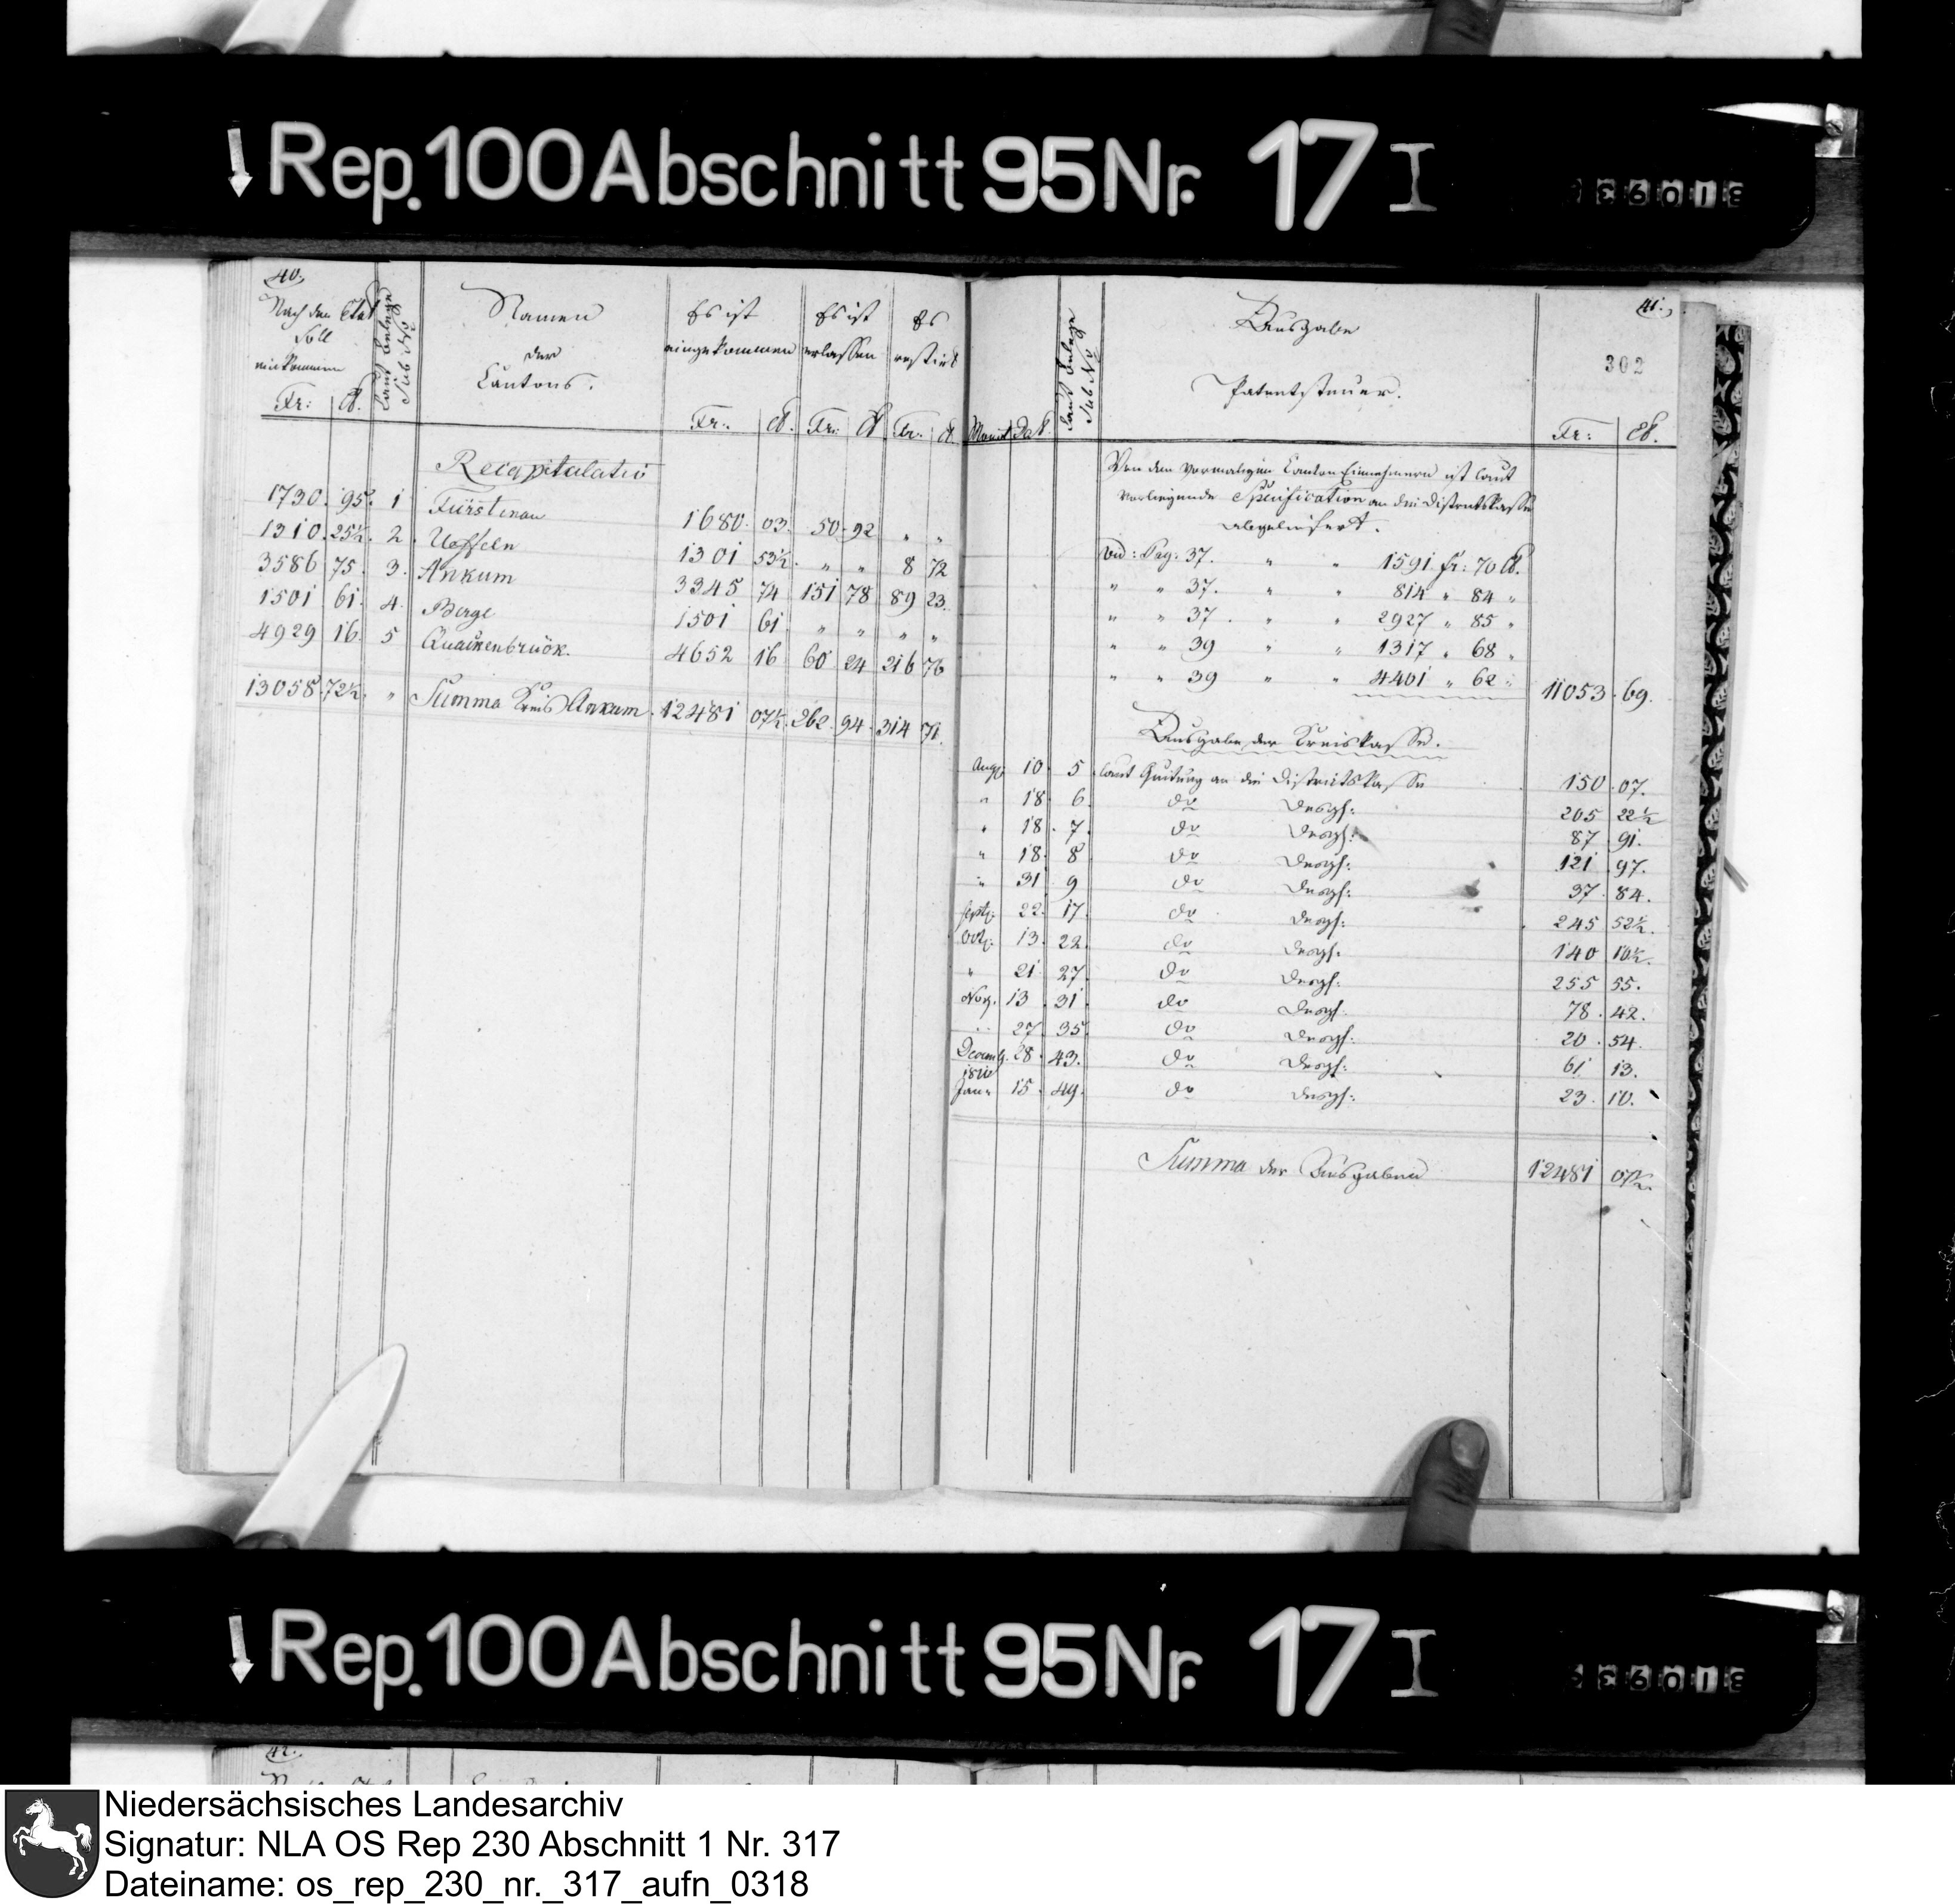 Rep. 100 Abschnitt 95 Nr. 17 I
40.
Nach dem Etat soll einkommen
Laut Belege Sub No
Namen der Cantons.
Es ist eingekommen
Es ist erlassen
Es restirt
Fr: Ct. Fr: Ct. Fr: Ct Fr: Ct.
Recapitulatio
1730. 95. 1 Fürstenau 1680. 03. 50 92 " "
1310. 25½. 2. Ueffeln 1301 53½. " " 8 72
3586 75. 3. Ankum 3345 74 151 78 89 23.
1501 61. 4. Berge 1501 61. " " " "
4929 16. 5 Quackenbrück. 4652 16 60 24 216 76
13058. 72½. " Summa Kreis Ankum. 12481 07½. 262. 94. 314 71.
41.
302
Monat Dat
Laut Belege Sub No
Ausgabe
Patentsteuer.
Fr: Ct.
Von den vormaligen Canton Einnehmern ist laut
vorliegende Specification an die Districtskasse
abgeliefert.
vid: Pag: 37. " " 1591. fr: 70 Ct.
" " 37. " " 814 " 84 "
" " 37. " " 2927 " 85 "
" " 39 " " 1317 " 68 "
" " 39 " " 4401 " 62 " 11053. 69.
Ausgabe der Kreiskasse.
Aug: 10. 5 laut Quitung an die Districtskasse 150. 07.
" 18. 6. do desgl: 205 22½
" 18. 7. do desgl: 87 91.
" 18. 8 do desgl: 121. 97.
" 31 9 do desgl: 37. 84.
Septb: 22. 17. do desgl: 245 52½.
Octb: 13. 22. do desgl: 140 10½.
" 21. 27. do desgl: 255 55.
Nov. 13. 31. do desgl. 78. 42.
" 27. 35. do desgl: 20. 54.
Decemb. 28. 43. do desgl: 61. 13.
1810
Janr 15. 49. do desgl: 23. 10.
Summa der Ausgaben 12481 07½.
Rep. 100 Abschnitt 95 Nr. 17 I
42.
Niedersächsisches Landesarchiv
Signatur: NLA OS Rep 230 Abschnitt 1 Nr. 317
Dateiname: os_rep_230_nr._317_aufn_0318